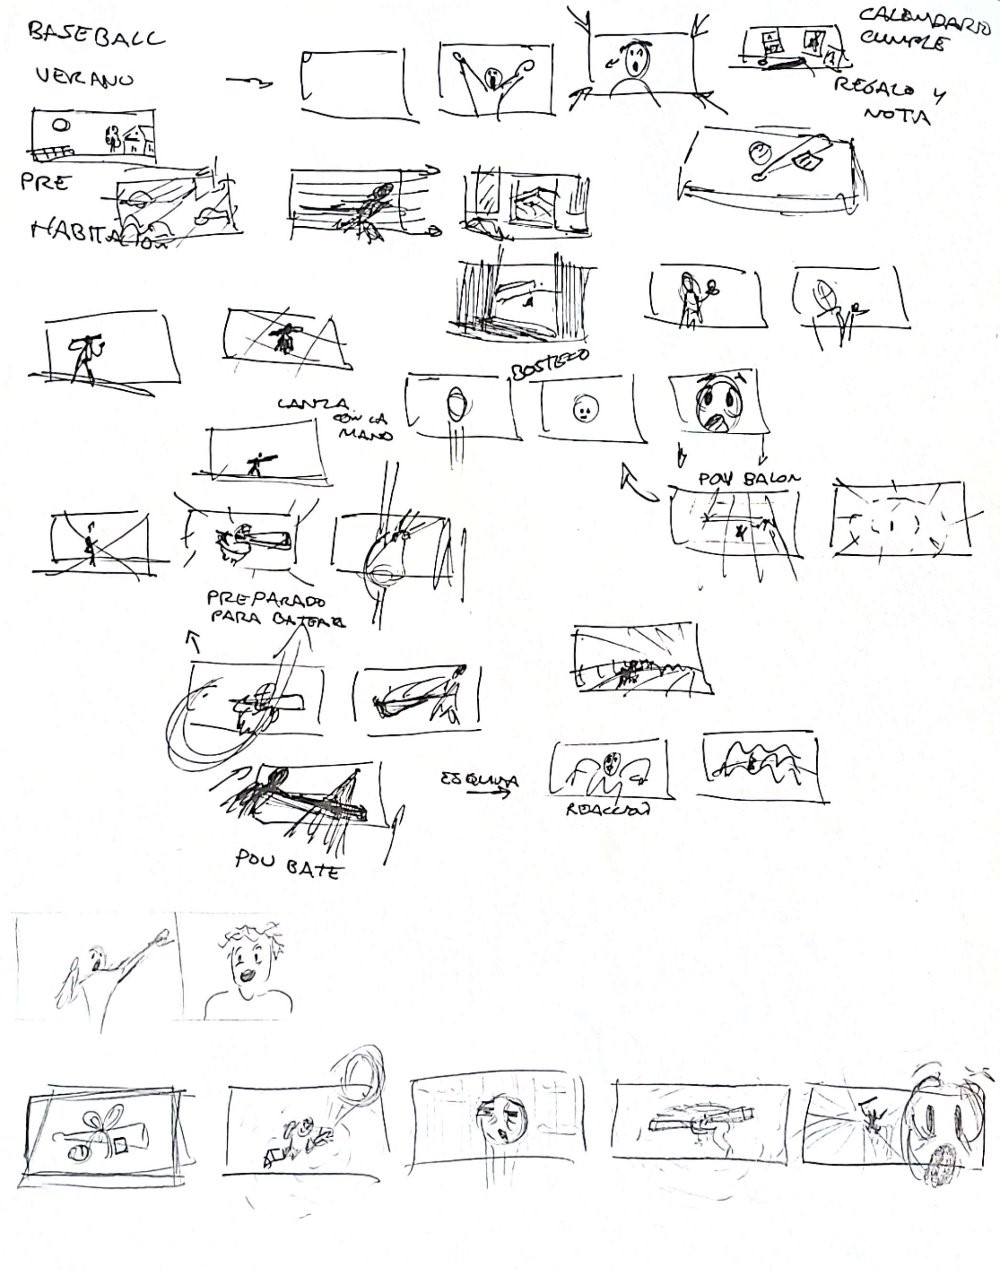 BASEBALL
VERANO
CALENDARIO
CUMPLE
REGALO Y
NOTA
PRE
HABITACIÓN
BOSTEZO
LANZA
CON LA
MANO
POV BALON
PREPARADO
PARA BATEAR
ESQUINA
REACCION
POV BATE